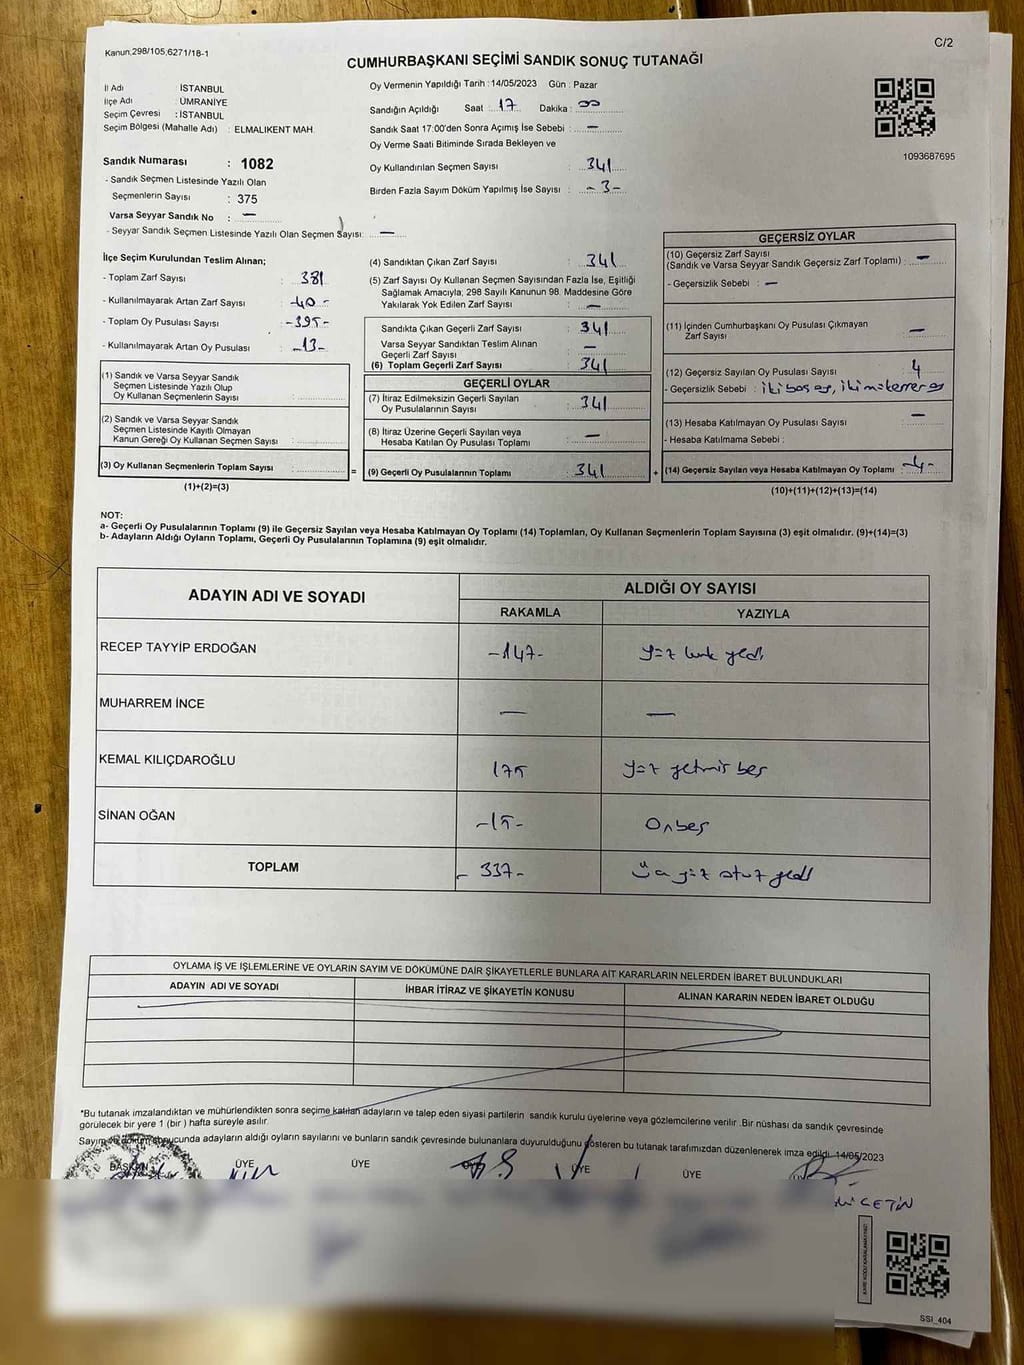 Kanun;298/105;6271/18-1
C/2
CUMHURBAŞKANI SEÇİMİ SANDIK SONUÇ TUTANAĞI
İl Adı : İSTANBUL
İlçe Adı : ÜMRANİYE
Seçim Çevresi : İSTANBUL
Seçim Bölgesi (Mahalle Adı) : ELMALIKENT MAH.
Sandık Numarası : 1082
- Sandık Seçmen Listesinde Yazılı Olan
Seçmenlerin Sayısı : 375
Varsa Seyyar Sandık No : —
- Seyyar Sandık Seçmen Listesinde Yazılı Olan Seçmen Sayısı: —
Oy Vermenin Yapıldığı Tarih : 14/05/2023 Gün : Pazar
Sandığın Açıldığı Saat 17 Dakika : 00
Sandık Saat 17:00'den Sonra Açımış İse Sebebi : —
Oy Verme Saati Bitiminde Sırada Bekleyen ve
Oy Kullandırılan Seçmen Sayısı : 341
Birden Fazla Sayım Döküm Yapılmış İse Sayısı : - 3 -
1093687695
İlçe Seçim Kurulundan Teslim Alınan;
- Toplam Zarf Sayısı : 381
- Kullanılmayarak Artan Zarf Sayısı : -40-
- Toplam Oy Pusulası Sayısı : -395-
- Kullanılmayarak Artan Oy Pusulası : -13-
(1) Sandık ve Varsa Seyyar Sandık
Seçmen Listesinde Yazılı Olup
Oy Kullanan Seçmenlerin Sayısı :
(2) Sandık ve Varsa Seyyar Sandık
Seçmen Listesinde Kayıtlı Olmayan
Kanun Gereği Oy Kullanan Seçmen Sayısı :
(3) Oy Kullanan Seçmenlerin Toplam Sayısı :
(1)+(2)=(3)
(4) Sandıktan Çıkan Zarf Sayısı : 341
(5) Zarf Sayısı Oy Kullanan Seçmen Sayısından Fazla İse, Eşitliği
Sağlamak Amacıyla; 298 Sayılı Kanunun 98. Maddesine Göre
Yakılarak Yok Edilen Zarf Sayısı : —
Sandıkta Çıkan Geçerli Zarf Sayısı : 341
Varsa Seyyar Sandıktan Teslim Alınan
Geçerli Zarf Sayısı : —
(6) Toplam Geçerli Zarf Sayısı : 341
GEÇERLİ OYLAR
(7) İtiraz Edilmeksizin Geçerli Sayılan
Oy Pusulalarının Sayısı : 341
(8) İtiraz Üzerine Geçerli Sayılan veya
Hesaba Katılan Oy Pusulası Toplamı : —
= (9) Geçerli Oy Pusulalarının Toplamı : 341 +
GEÇERSİZ OYLAR
(10) Geçersiz Zarf Sayısı
(Sandık ve Varsa Seyyar Sandık Geçersiz Zarf Toplamı) : —
- Geçersizlik Sebebi : —
(11) İçinden Cumhurbaşkanı Oy Pusulası Çıkmayan
Zarf Sayısı —
(12) Geçersiz Sayılan Oy Pusulası Sayısı : 4
- Geçersizlik Sebebi : iki boş oy, iki mükerrer oy
(13) Hesaba Katılmayan Oy Pusulası Sayısı : —
- Hesaba Katılmama Sebebi :
(14) Geçersiz Sayılan veya Hesaba Katılmayan Oy Toplamı : -4-
(10)+(11)+(12)+(13)=(14)
NOT:
a- Geçerli Oy Pusulalarının Toplamı (9) ile Geçersiz Sayılan veya Hesaba Katılmayan Oy Toplamı (14) Toplamları, Oy Kullanan Seçmenlerin Toplam Sayısına (3) eşit olmalıdır. (9)+(14)=(3)
b- Adayların Aldığı Oyların Toplamı, Geçerli Oy Pusulalarının Toplamına (9) eşit olmalıdır.
ADAYIN ADI VE SOYADI
ALDIĞI OY SAYISI
RAKAMLA YAZIYLA
RECEP TAYYİP ERDOĞAN -147- yüz kırk yedi
MUHARREM İNCE — —
KEMAL KILIÇDAROĞLU 175 yüz yetmiş beş
SİNAN OĞAN -15- On beş
TOPLAM - 337- üç yüz otuz yedi
OYLAMA İŞ VE İŞLEMLERİNE VE OYLARIN SAYIM VE DÖKÜMÜNE DAİR ŞİKAYETLERLE BUNLARA AİT KARARLARIN NELERDEN İBARET BULUNDUKLARI
ADAYIN ADI VE SOYADI
İHBAR İTİRAZ VE ŞİKAYETİN KONUSU
ALINAN KARARIN NEDEN İBARET OLDUĞU
*Bu tutanak imzalandıktan ve mühürlendikten sonra seçime katılan adayların ve talep eden siyasi partilerin sandık kurulu üyelerine veya gözlemcilerine verilir. Bir nüshası da sandık çevresinde
görülecek bir yere 1 (bir ) hafta süreyle asılır.
Sayım ve döküm sonucunda adayların aldığı oyların sayılarını ve bunların sandık çevresinde bulunanlara duyurulduğunu gösteren bu tutanak tarafımızdan düzenlenerek imza edildi. 14/05/2023
BAŞKAN ÜYE ÜYE ÜYE ÜYE
ÇETİN
SSI_404